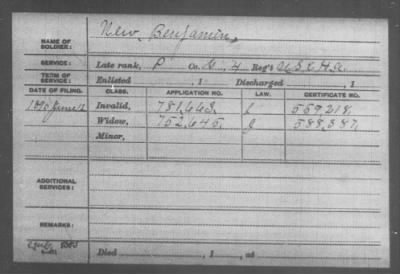 NAME OF SOLDIER: New, Benjamin,
SERVICE: Late rank, P Co. , 4 Reg't U.S.C.H.A.
TERM OF SERVICE: Enlisted , 1 Discharged , 1
DATE OF FILING. CLASS. APPLICATION NO. LAW. CERTIFICATE NO.
Invalid, 781,663, 559,218,
Widow, 752,645, 588,387,
Minor,
ADDITIONAL SERVICES:
REMARKS:
Died , 1 , at